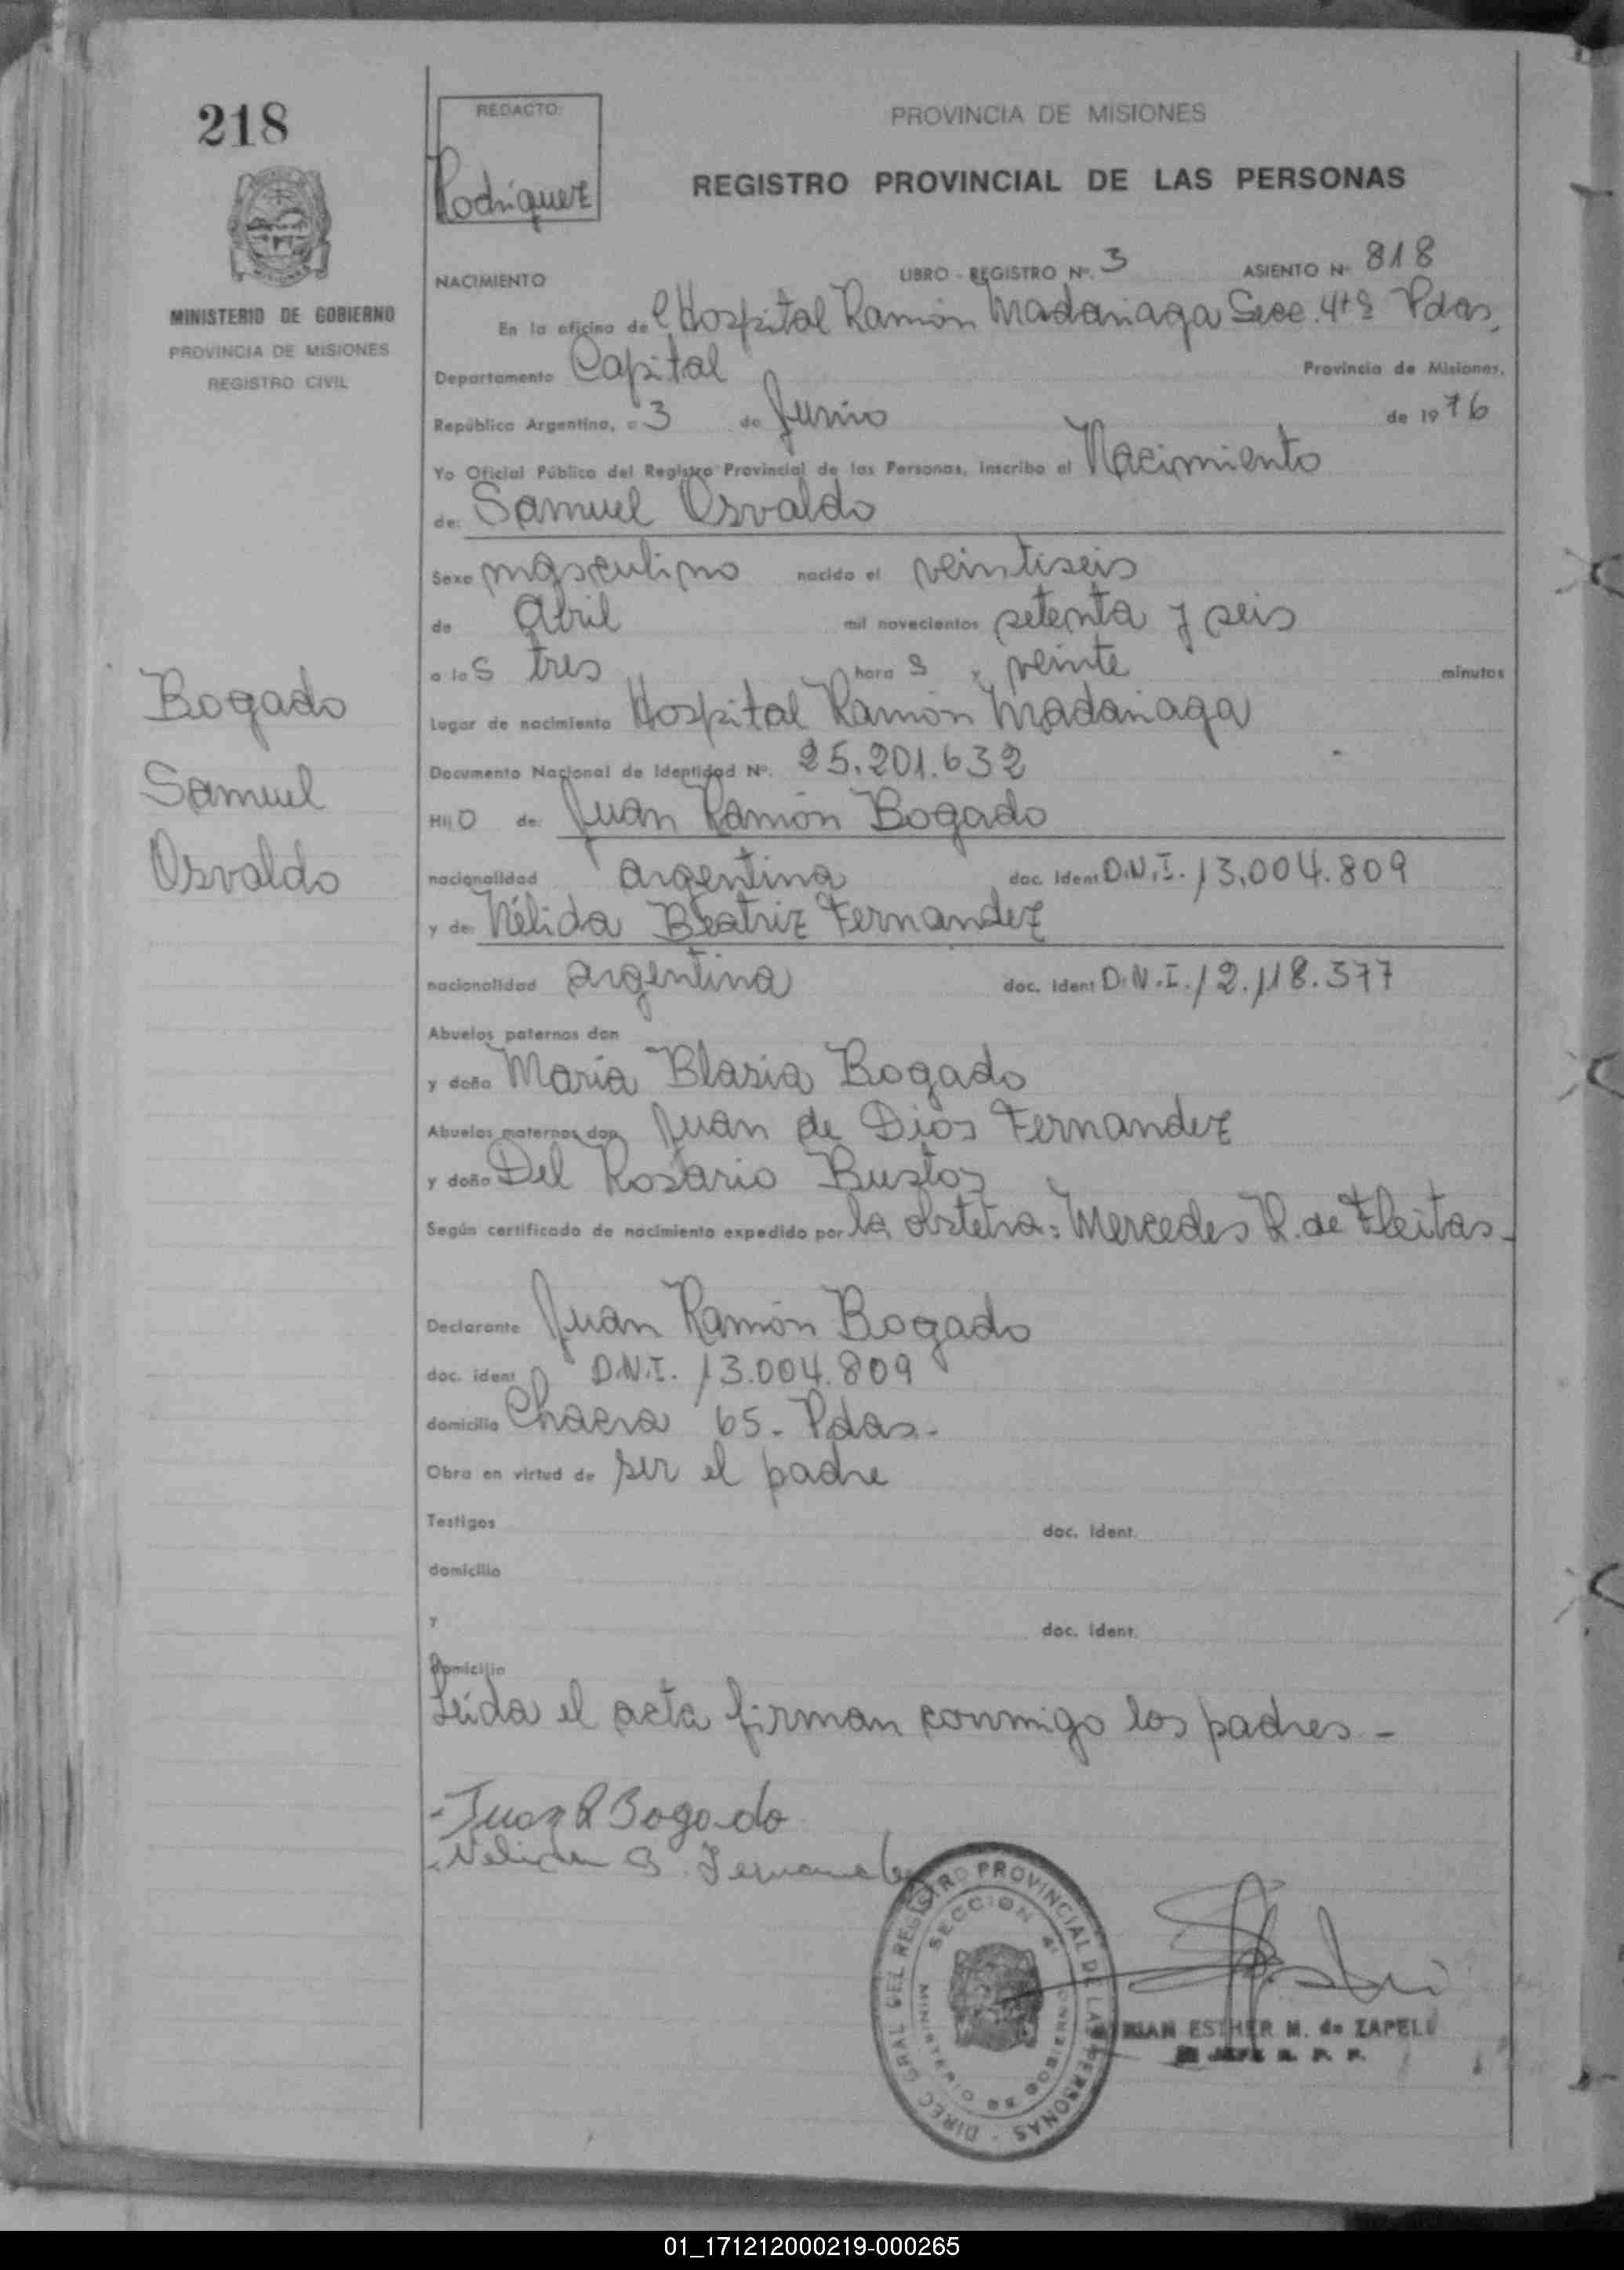 218
REDACTO:
Rodriguez
PROVINCIA DE MISIONES
REGISTRO PROVINCIAL DE LAS PERSONAS
MINISTERIO DE GOBIERNO
PROVINCIA DE MISIONES
REGISTRO CIVIL
NACIMIENTO LIBRO - REGISTRO Nº. 3 ASIENTO Nº 818
En la oficina de l Hospital Ramón Madariaga Secc. 4ta Pdas.
Departamento Capital Provincia de Misiones,
República Argentina, a 3 de Junio de 1976
Yo Oficial Público del Registro Provincial de las Personas, inscribo el Nacimiento
de: Samuel Osvaldo
Sexo masculino nacido el veintiseis
de Abril mil novecientos setenta y seis
a las tres horas y veinte minutos
Lugar de nacimiento Hospital Ramón Madariaga
Documento Nacional de Identidad Nº. 25.201.632
Hijo de: Juan Ramón Bogado
nacionalidad argentina doc. Ident D.N.I. 13.004.809
y de Nélida Beatriz Fernandez
nacionalidad argentina doc. Ident D.N.I. 12.118.377
Abuelos paternos don
y doña María Blasia Bogado
Abuelos maternos don Juan de Dios Fernandez
y doña Del Rosario Bustos
Según certificado de nacimiento expedido por la obstetra: Mercedes R. de Fleitas-
Declarante Juan Ramón Bogado
doc. ident D.N.I. 13.004.809
domicilio Chacra 65. Pdas.-
Obra en virtud de ser el padre
Testigos doc. Ident.
domicilio
y doc. Ident.
domicilio
Leída el acta firman conmigo los padres-
Bogado
Samuel
Osvaldo
-Juan R Bogado
Nelida B. Fernandez
DIREC GRAL DEL REGISTRO PROVINCIAL DE LAS PERSONAS -
SECCION 4ª
MINISTERIO DE GOBIERNO
ESTHER M. de ZAPELLI
JEFE R. P. P.
01_171212000219-000265